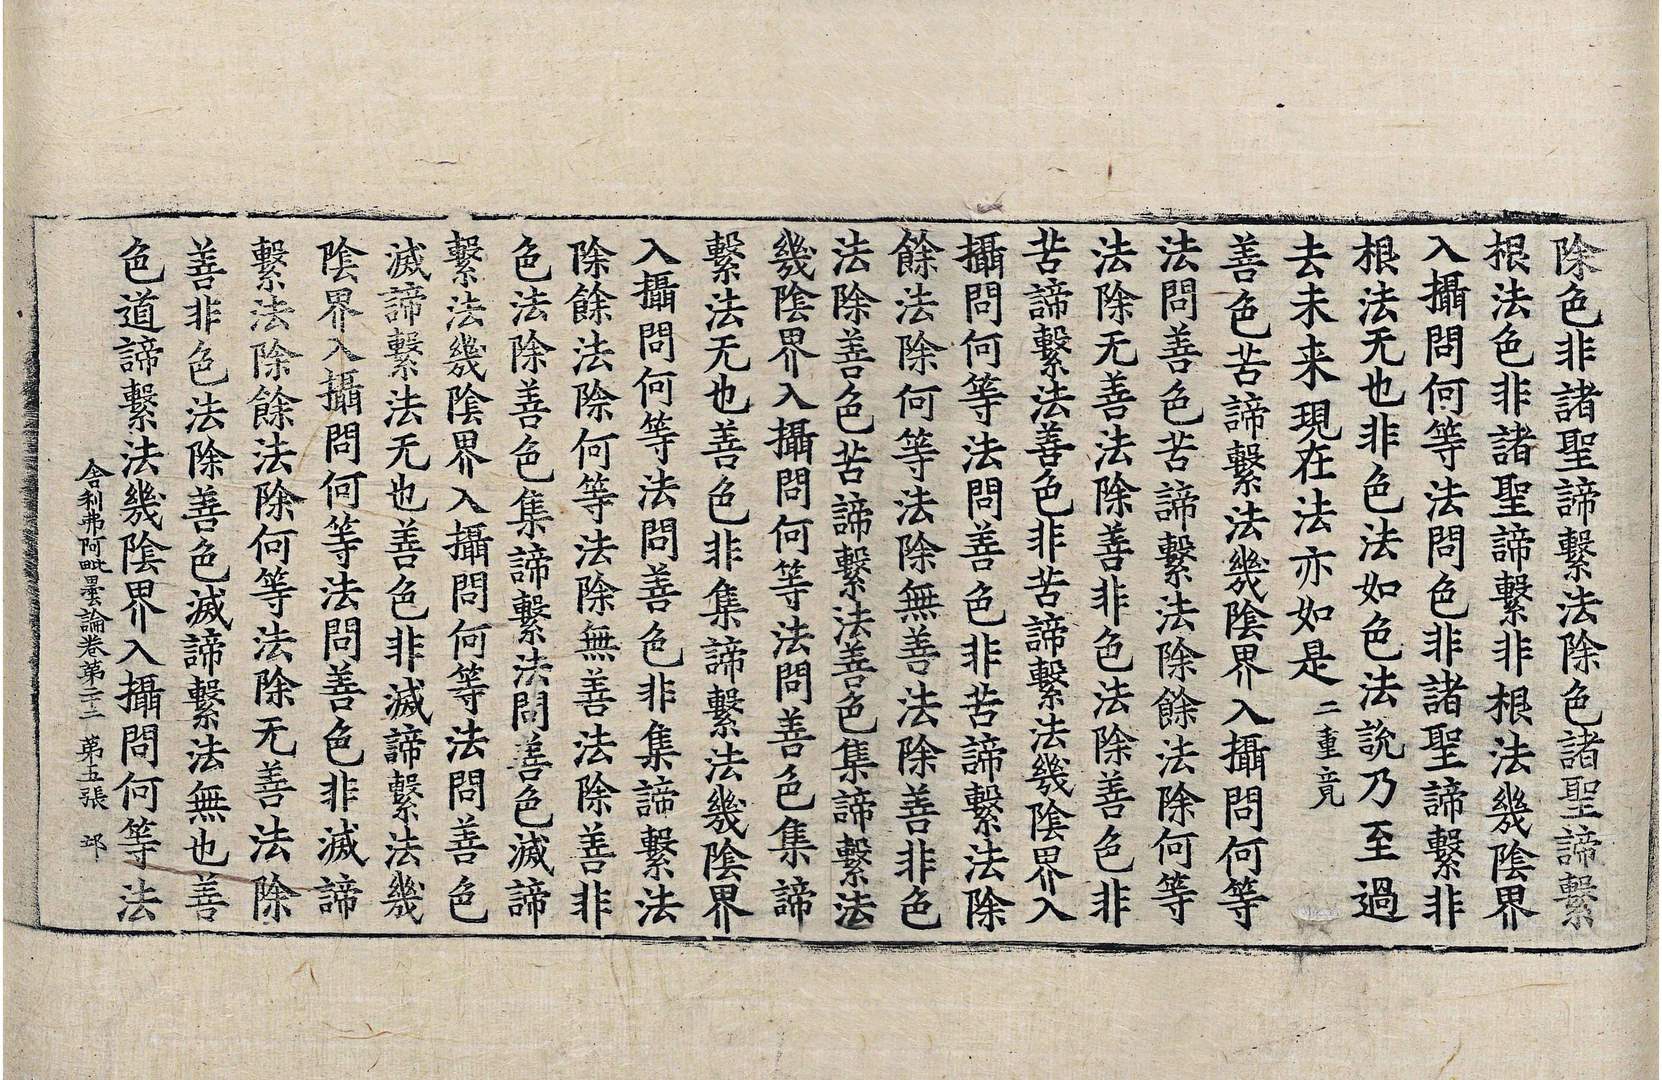 除色非諸聖諦繫法除色諸聖諦繫
根法色非諸聖諦繫非根法幾陰界
入攝問何等法問色非諸聖諦繫非
根法无也非色法如色法說乃至過
去未来現在法亦如是 二重竟
善色苦諦繫法幾陰界入攝問何等
法問善色苦諦繫法除餘法除何等
法除无善法除善非色法除善色非
苦諦繫法善色非苦諦繫法幾陰界入
攝問何等法問善色非苦諦繫法除
餘法除何等法除無善法除善非色
法除善色苦諦繫法善色集諦繫法
幾陰界入攝問何等法問善色集諦
繫法无也善色非集諦繫法幾陰界
入攝問何等法問善色非集諦繫法
除餘法除何等法除無善法除善非
色法除善色集諦繫法問善色滅諦
繫法幾陰界入攝問何等法問善色
滅諦繫法无也善色非滅諦繫法幾
陰界入攝問何等法問善色非滅諦
繫法除餘法除何等法除无善法除
善非色法除善色滅諦繫法無也善
色道諦繫法幾陰界入攝問何等法
舍利弗阿毗曇論卷第二十二 第五張 邙